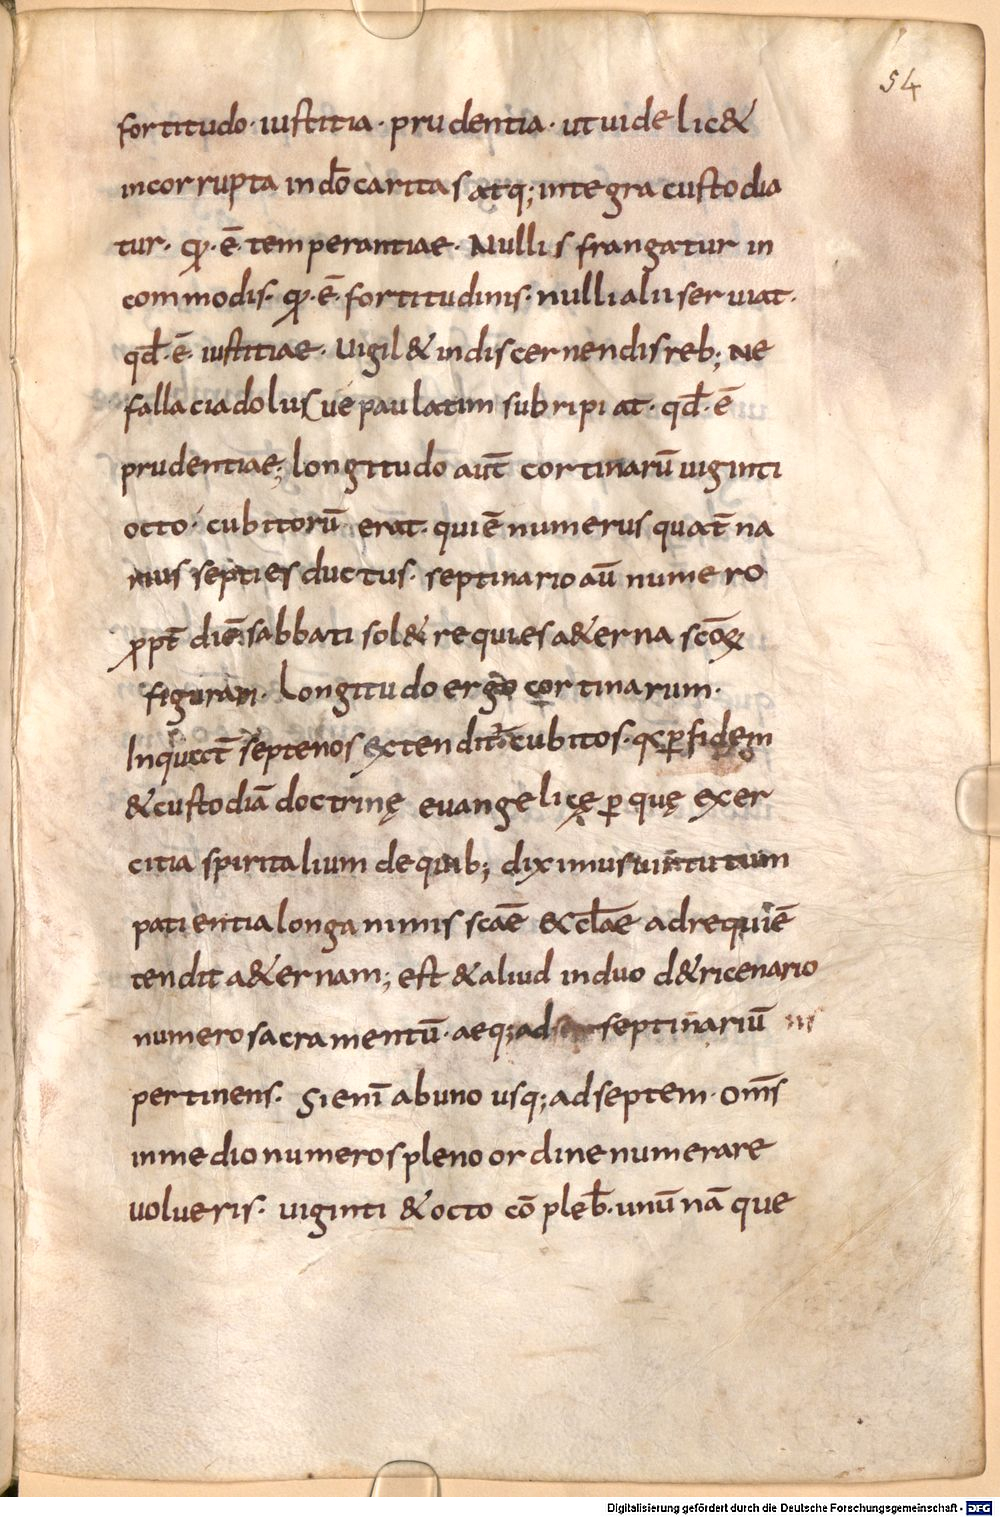 54
fortitudo · iustitia · prudentia · ut uidelic&
incorrupta in dō caritas atq; integra custodia
tur · qđ · ē · temperantiae · Nullis frangatur in
commodis · qđ · ē · fortitudinis · nulli alii seruiat ·
qđ · ē · iustitiae · Uigil& in discernendis reb; Ne
fallacia dolusue paulatim subripiat · qđ · ē
prudentiae; longitudo aut̄ cortinarū uiginti
octo · cubitorū erat · qui ē numerus quat̄na
rius septies ductus · septinario aū numero
ꝓpt̄ diē sabbati sol& requies a&erna scōꝝ
figurari · Longitudo ergo cortinarum ·
Inquit septenos extendit cubitos · q ꝑ fidem
& custodiā doctrinę euangelicę ꝑ quę exer
citia spiritalium de quib; diximus uirtutum
patientia longanimis scae ēccłae ad requiē
tendit a&ernam; est & aliud in duo d&ricenario
numero sacramentū · aeq; ad septinariū
pertinens · Si enī ab uno usq; ad septem · om̄s
in medio numeros pleno ordine numerare
uolueris · uiginti & octo cōpleb · unū nāque
Digitalisierung gefördert durch die Deutsche Forschungsgemeinschaft - DFG